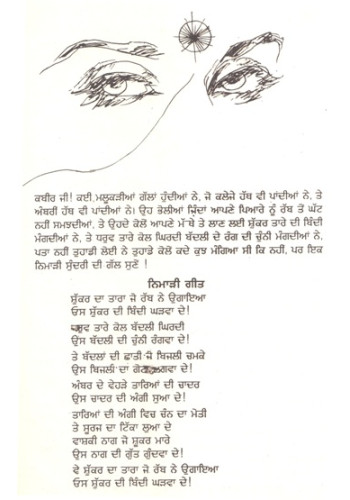 ਕਬੀਰ ਜੀ! ਕਈ ਮਲੂਕੜੀਆਂ ਗੱਲਾਂ ਹੁੰਦੀਆਂ ਨੇ, ਜੋ ਕਲੇਜੇ ਹੱਥ ਵੀ ਪਾਂਦੀਆਂ ਨੇ, ਤੇ
ਅੰਬਰੀ ਹੱਥ ਵੀ ਪਾਂਦੀਆਂ ਨੇ। ਉਹ ਭੋਲੀਆਂ ਜਿੰਦਾਂ ਆਪਣੇ ਪਿਆਰੇ ਨੂੰ ਰੱਬ ਤੋਂ ਘੱਟ
ਨਹੀਂ ਸਮਝਦੀਆਂ, ਤੇ ਉਹਦੇ ਕੋਲੋਂ ਆਪਣੇ ਮੱਥੇ ਤੇ ਲਾਣ ਲਈ ਸ਼ੁੱਕਰ ਤਾਰੇ ਦੀ ਬਿੰਦੀ
ਮੰਗਦੀਆਂ ਨੇ, ਤੇ ਧਰੁਵ ਤਾਰੇ ਕੋਲ ਘਿਰਦੀ ਬੱਦਲੀ ਦੇ ਰੰਗ ਦੀ ਚੁੰਨੀ ਮੰਗਦੀਆਂ ਨੇ,
ਪਤਾ ਨਹੀਂ ਤੁਹਾਡੀ ਲੋਈ ਨੇ ਤੁਹਾਡੇ ਕੋਲੋਂ ਕਦੇ ਕੁਝ ਮੰਗਿਆ ਸੀ ਕਿ ਨਹੀਂ, ਪਰ ਇਕ
ਨਿਮਾੜੀ ਸੁੰਦਰੀ ਦੀ ਗੱਲ ਸੁਣੋ !
ਨਿਮਾੜੀ ਗੀਤ
ਸ਼ੁੱਕਰ ਦਾ ਤਾਰਾ ਜੋ ਰੱਬ ਨੇ ਉਗਾਇਆ
ਓਸ ਸ਼ੁੱਕਰ ਦੀ ਬਿੰਦੀ ਘੜਵਾ ਦੇ!
ਤਾਰੇ ਕੋਲ ਬੱਦਲੀ ਘਿਰਦੀ
ਉਸ ਬੱਦਲੀ ਦੀ ਚੁੰਨੀ ਰੰਗਵਾ ਦੇ!
ਤੇ ਬੱਦਲਾਂ ਦੀ ਛਾਤੀ ਜੋ ਬਿਜਲੀ ਚਮਕੇ
ਉਸ ਬਿਜਲੀ ਦਾ ਦੇ!
ਅੰਬਰ ਦੇ ਵੇਹੜੇ ਤਾਰਿਆਂ ਦੀ ਚਾਦਰ
ਉਸ ਚਾਦਰ ਦੀ ਅੰਗੀ ਸੁਆ ਦੇ!
ਤਾਰਿਆਂ ਦੀ ਅੰਗੀ ਵਿਚ ਚੰਨ ਦਾ ਮੋਤੀ
ਤੇ ਸੂਰਜ ਦਾ ਟਿੱਕਾ ਲੁਆ ਦੇ
ਵਾਸ਼ਕੀ ਨਾਗ ਜੋ ਸ਼ੂਕਰ ਮਾਰੇ
ਉਸ ਨਾਗ ਦੀ ਗੁੱਤ ਗੁੰਦਵਾ ਦੇ!
ਵੇ ਸ਼ੁੱਕਰ ਦਾ ਤਾਰਾ ਜੋ ਰੱਬ ਨੇ ਉਗਾਇਆ
ਓਸ ਸ਼ੁੱਕਰ ਦੀ ਬਿੰਦੀ ਘੜਵਾ ਦੇ!